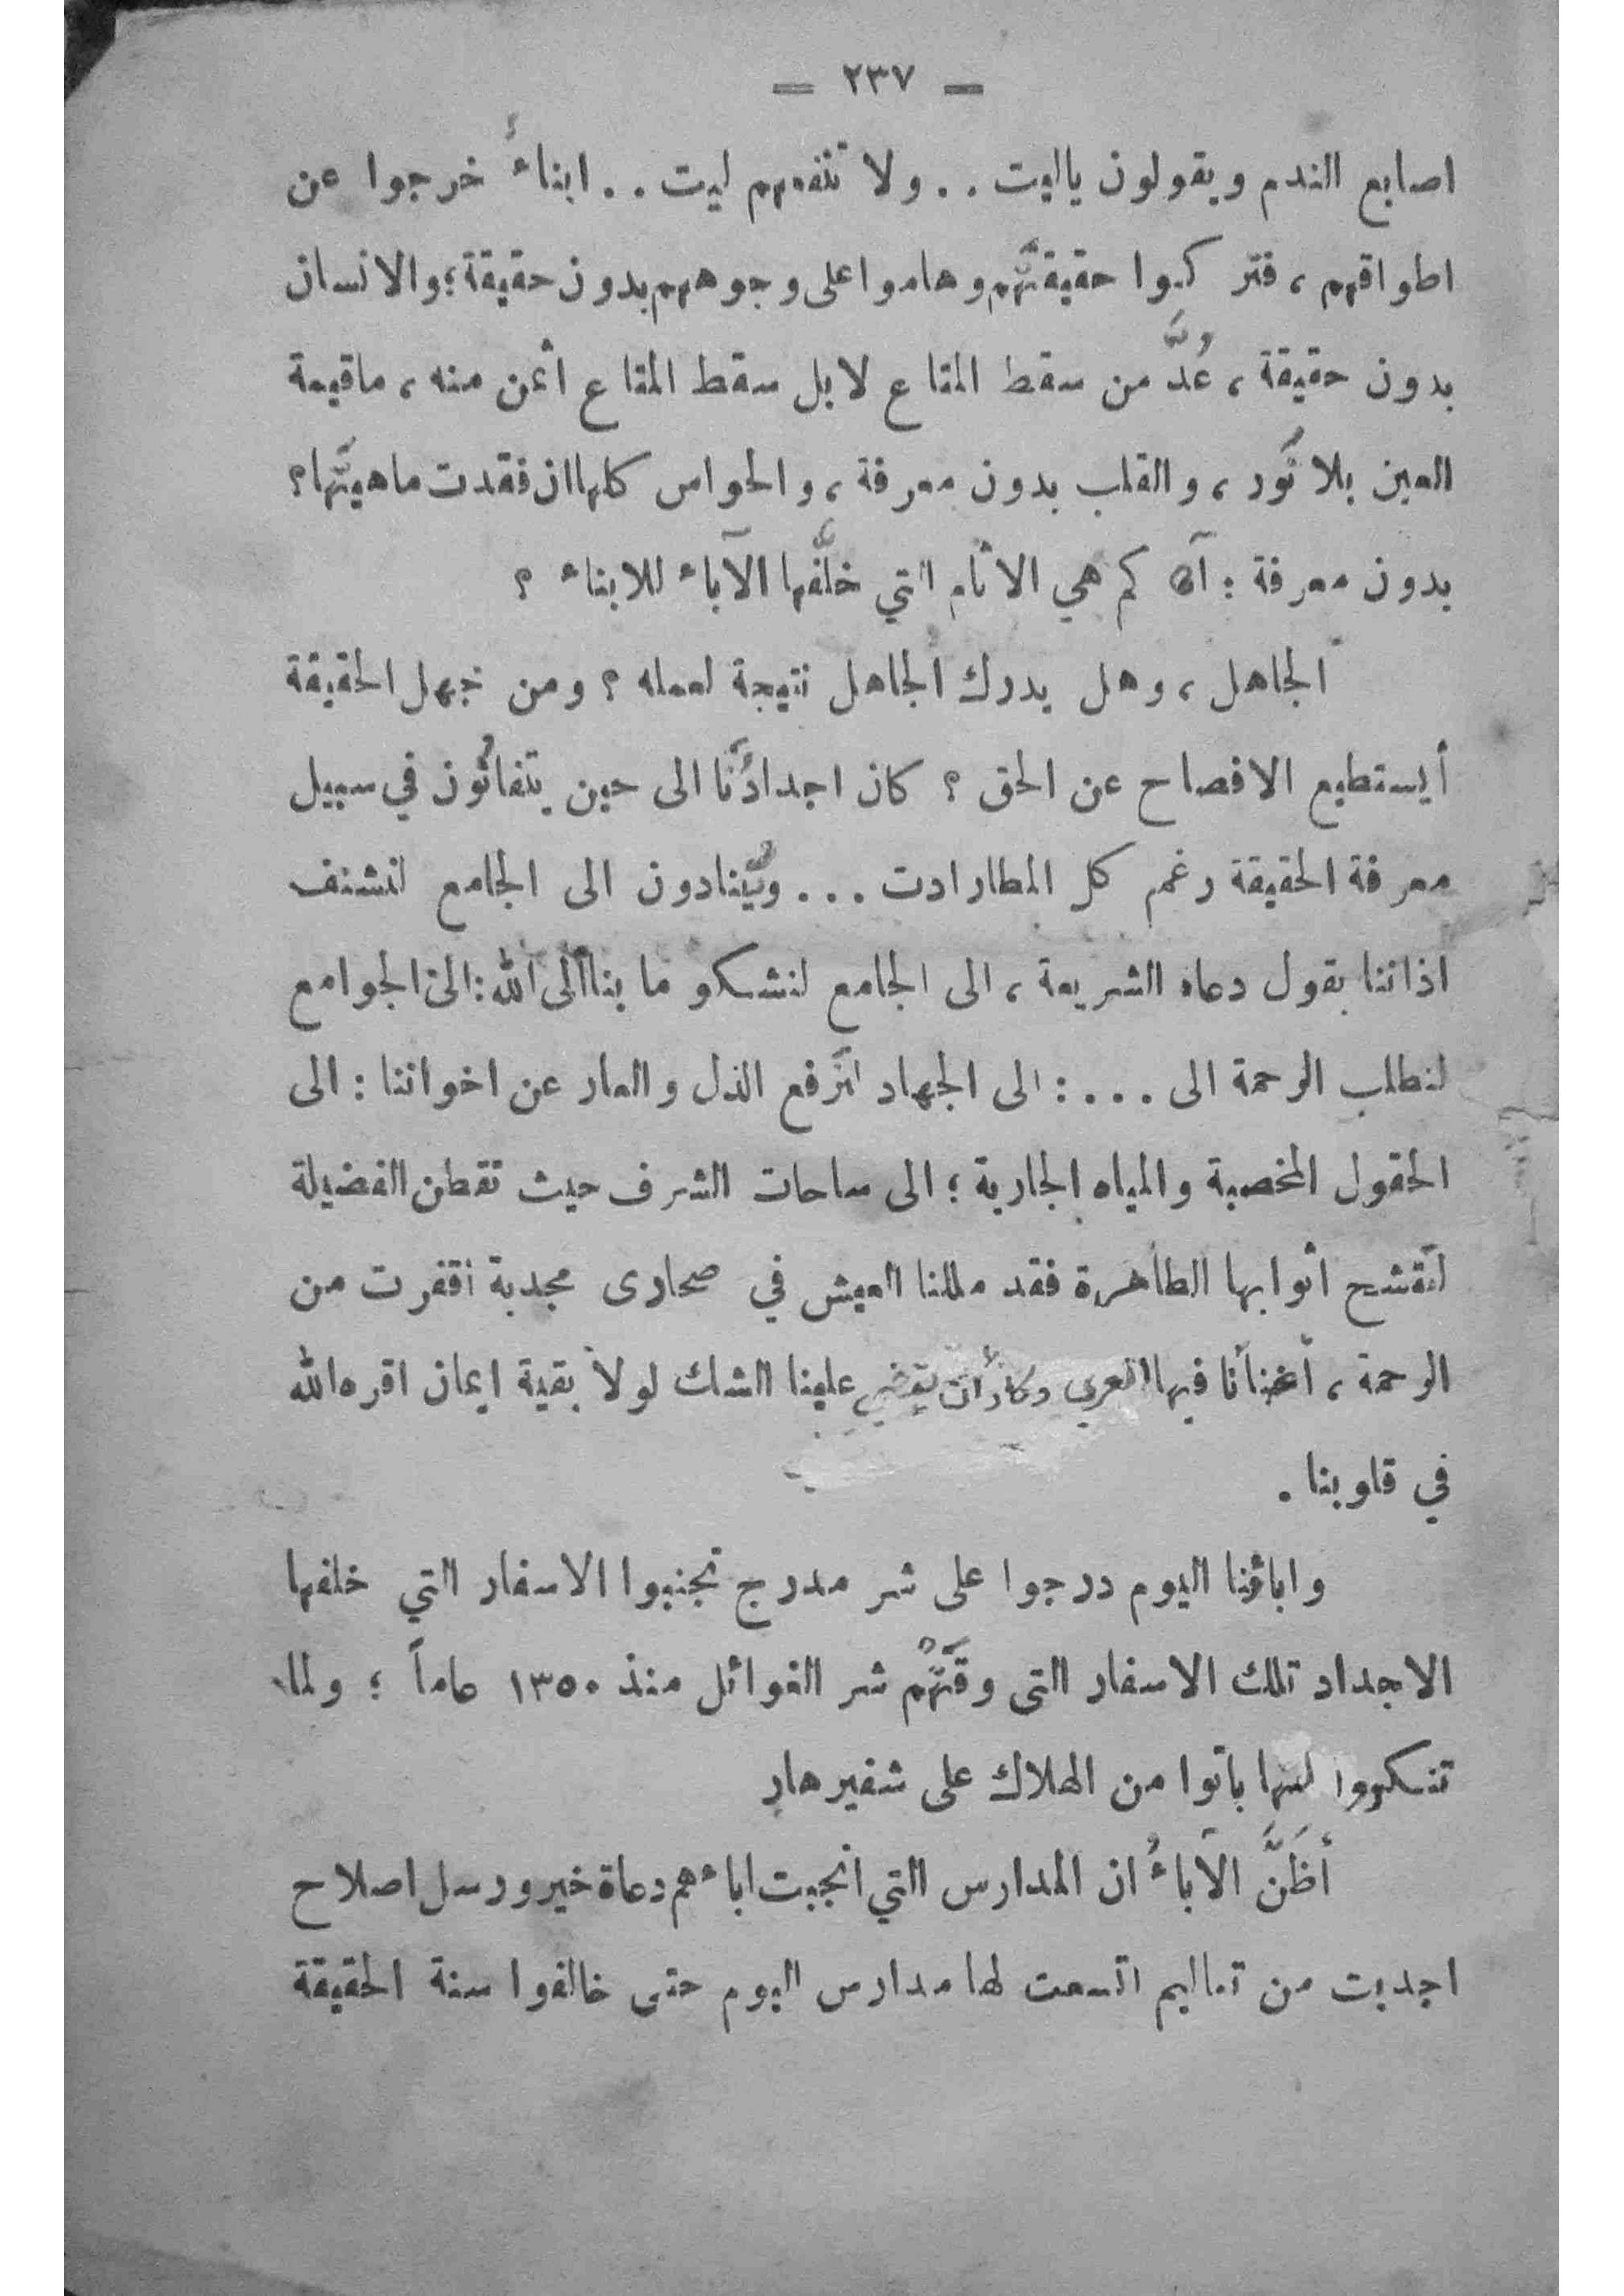 — ٢٣٧ —
اصابع الندم ويقولون ياليت . . ولا تنفعهم ليت . . ابناءُ خرجوا عن
اطواقهم ، فتركوا حقيقتَهم وهاموا على وجوههم بدون حقيقة ؛ والانسان
بدون حقيقة ، عُدَّ من سقط المتاع لابل سقط المتاع أثمن منه ، ماقيمة
العين بلا نور ، والقلب بدون معرفة ، والحواس كلها ان فقدت ماهيتَها ؟
بدون معرفة : آه كم هي الاثام التي خلَّفها الآباء للابناء ؟
الجاهل ، وهل يدرك الجاهل نتيجة لعمله ؟ ومن جهل الحقيقة
أيستطيع الافصاح عن الحق ؟ كان اجدادُنا الى حين يتفانُون في سبيل
معرفة الحقيقة رغم كل المطاردات . . . ويُنادون الى الجامع لنشنف
اذاننا بقول دعاه الشريعة ، الى الجامع لنشكو ما بنا الى الله : الى الجوامع
لنطلب الرحمة الى . . . : الى الجهاد لنرفع الذل والعار عن اخواننا : الى
الحقول المخصبة والمياه الجارية ؛ الى ساحات الشرف حيث تقطن الفضيلة
لنتشح أثوابها الطاهرة فقد مللنا العيش في صحارى مجدبة اقفرت من
الرحمة ، فيها العري وكاد أن يقضي علينا الشك لولا بقية ايمان اقره الله
في قلوبنا .
واباؤنا اليوم درجوا على شر مدرج تجنبوا الاسفار التي خلفها
الاجداد تلك الاسفار التى وقَتهُم شر الغوائل منذ ١٣٥٠ عاماً ؛ ولما
تنكروا لها باتوا من الهلاك على شفير هارٍ
أظَنَّ الآباءُ ان المدارس التي انجبت اباءهم دعاة خير ورسل اصلاح
اجدبت من تعاليم اتسعت لها مدارس اليوم حتى خالفوا سنة الحقيقة